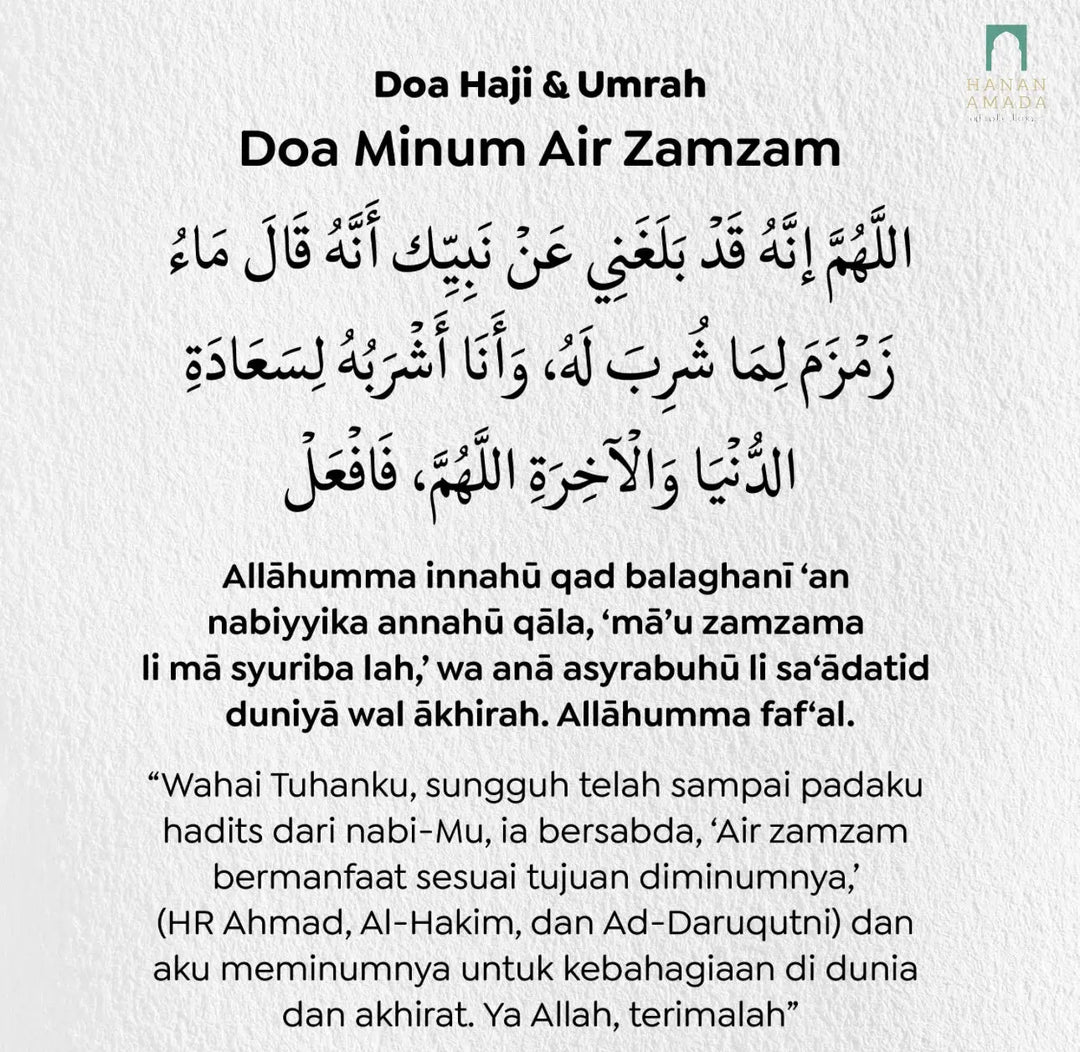 HANAN
AMADA
Doa Haji & Umrah
Doa Minum Air Zamzam
اللَّهُمَّ إِنَّهُ قَدْ بَلَغَنِي عَنْ نَبِيِّك أَنَّهُ قَالَ مَاءُ
زَمْزَمَ لِمَا شُرِبَ لَهُ، وَأَنَا أَشْرَبُهُ لِسَعَادَةِ
الدُّنْيَا وَالْآخِرَةِ اللَّهُمَّ، فَافْعَلْ
Allāhumma innahū qad balaghanī ‘an
nabiyyika annahū qāla, ‘mā’u zamzama
li mā syuriba lah,’ wa anā asyrabuhū li sa‘ādatid
duniyā wal ākhirah. Allāhumma faf‘al.
“Wahai Tuhanku, sungguh telah sampai padaku
hadits dari nabi-Mu, ia bersabda, ‘Air zamzam
bermanfaat sesuai tujuan diminumnya,’
(HR Ahmad, Al-Hakim, dan Ad-Daruqutni) dan
aku meminumnya untuk kebahagiaan di dunia
dan akhirat. Ya Allah, terimalah”